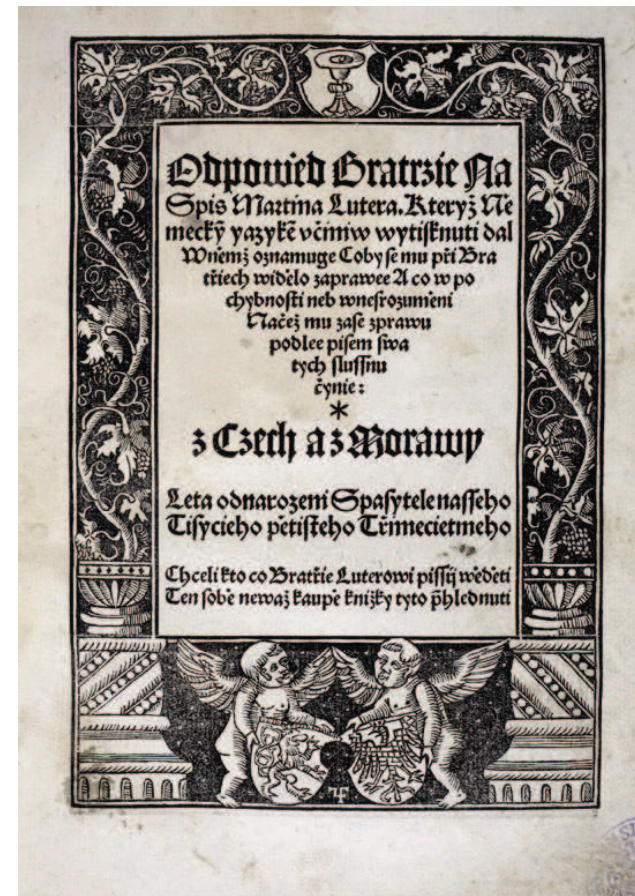 Odpowied Bratrzie Na
Spis Martina Lutera. Kteryž Ne
mecký yazykē včiniw wytisknuti dal
Wnemž oznamuge Coby se mu při Bra
třiech widelo zaprawee A co w po
chybnosti neb wnesrozumieni
Načež mu zase zprawu
podlee pisem swa
tych slussnu
čynie:
*
z Czech a z Morawy
Leta odnarozeni Spasytele nasseho
Tisycieho pětisteho Třimecietmeho
Chceli kto co Bratřie Luterowi pissij wedeti
Ten sobe newaž kaupě knižky tyto p̄hlednuti